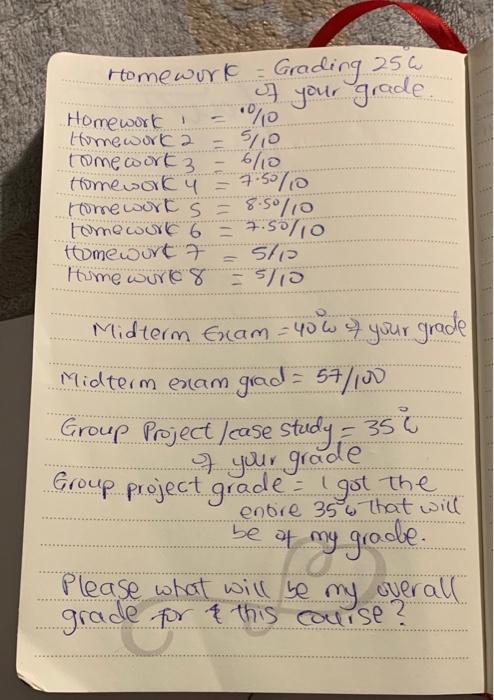 Homework = Grading 25%
of your grade.
Homework 1 = 10/10
Homework 2 = 5/10
Homework 3 = 6/10
Homework 4 = 7.50/10
Homework 5 = 8.50/10
Homework 6 = 7.50/10
Homework 7 = 5/10
Homework 8 = 5/10
Midterm Exam = 40% of your grade
Midterm exam grad = 57/100
Group Project/case study = 35%
of your grade
Group project grade = I got the
entire 35% that will
be of my grade.
Please what will be my overall
grade for this course?